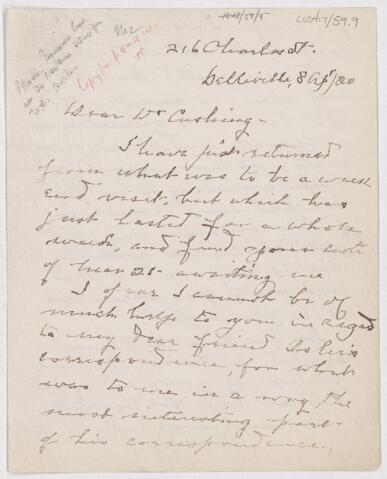 CUS417/59.9
No 2
216 Charles St.
Belleville, 8 Apr/20
Dear Dr Cushing -
I have just returned
from what was to be a week
end visit, but which has
just lasted for a whole
week, and find your note
of Mar 25 awaiting me
I fear I cannot be of
much help to you in regard
to my dear friend Osler's
correspondence, for what
was to me in a way the
most interesting part
of his correspondence,